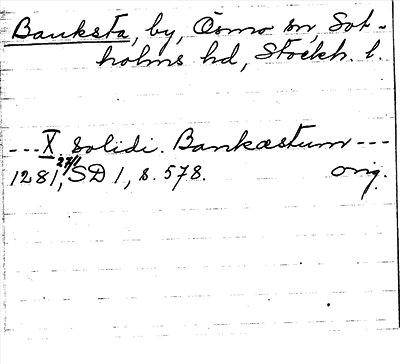 Banksta, by, Ösmo sn, Sot-
holms hd, Stockh. l.
---X solidi. Bankæstum---
1281, 27/1 SD 1, s. 578. orig.